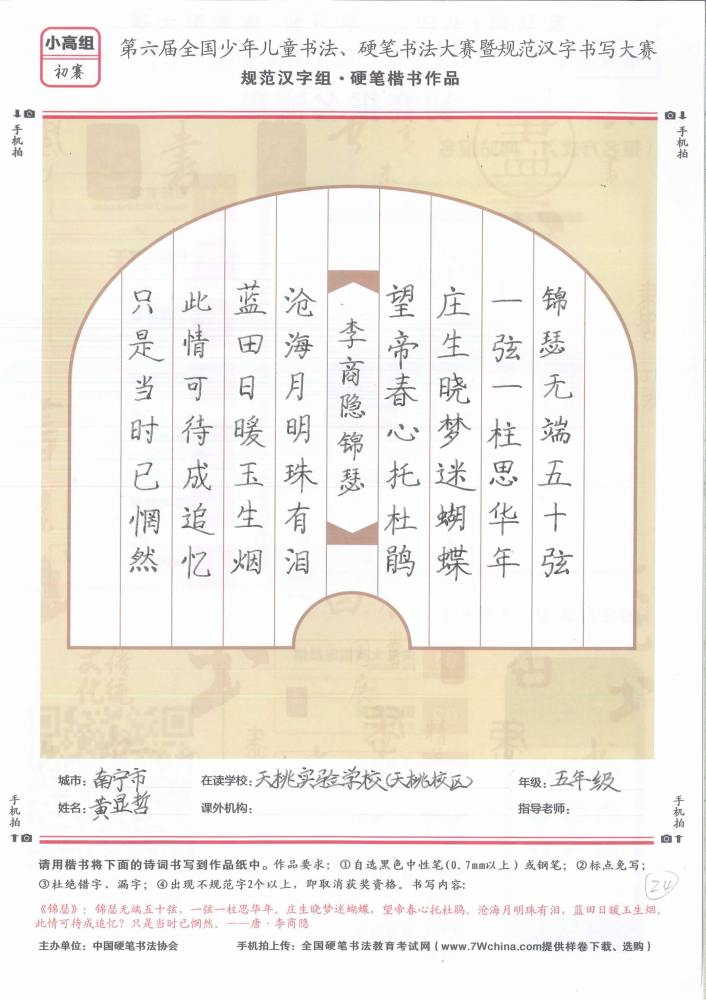 小高组
初赛
第六届全国少年儿童书法、硬笔书法大赛暨规范汉字书写大赛
规范汉字组·硬笔楷书作品
手机拍
手机拍
锦瑟无端五十弦
一弦一柱思华年
庄生晓梦迷蝴蝶
望帝春心托杜鹃
李商隐锦瑟
沧海月明珠有泪
蓝田日暖玉生烟
此情可待成追忆
只是当时已惘然
城市：南宁市
在读学校：天桃实验学校（天桃校区）
年级：五年级
姓名：黄显哲
课外机构：
指导老师：
手机拍
手机拍
请用楷书将下面的诗词书写到作品纸中。作品要求：①自选黑色中性笔(0.7mm以上）或钢笔；②标点免写；
③杜绝错字、漏字；④出现不规范字2个以上，即取消获奖资格。书写内容：
24
《锦瑟》：锦瑟无端五十弦，一弦一柱思华年。庄生晓梦迷蝴蝶，望帝春心托杜鹃。沧海月明珠有泪，蓝田日暖玉生烟。
此情可待成追忆？只是当时已惘然。——唐·李商隐
主办单位：中国硬笔书法协会
手机拍上传：全国硬笔书法教育考试网（www.7Wchina.com提供样卷下载、选购）